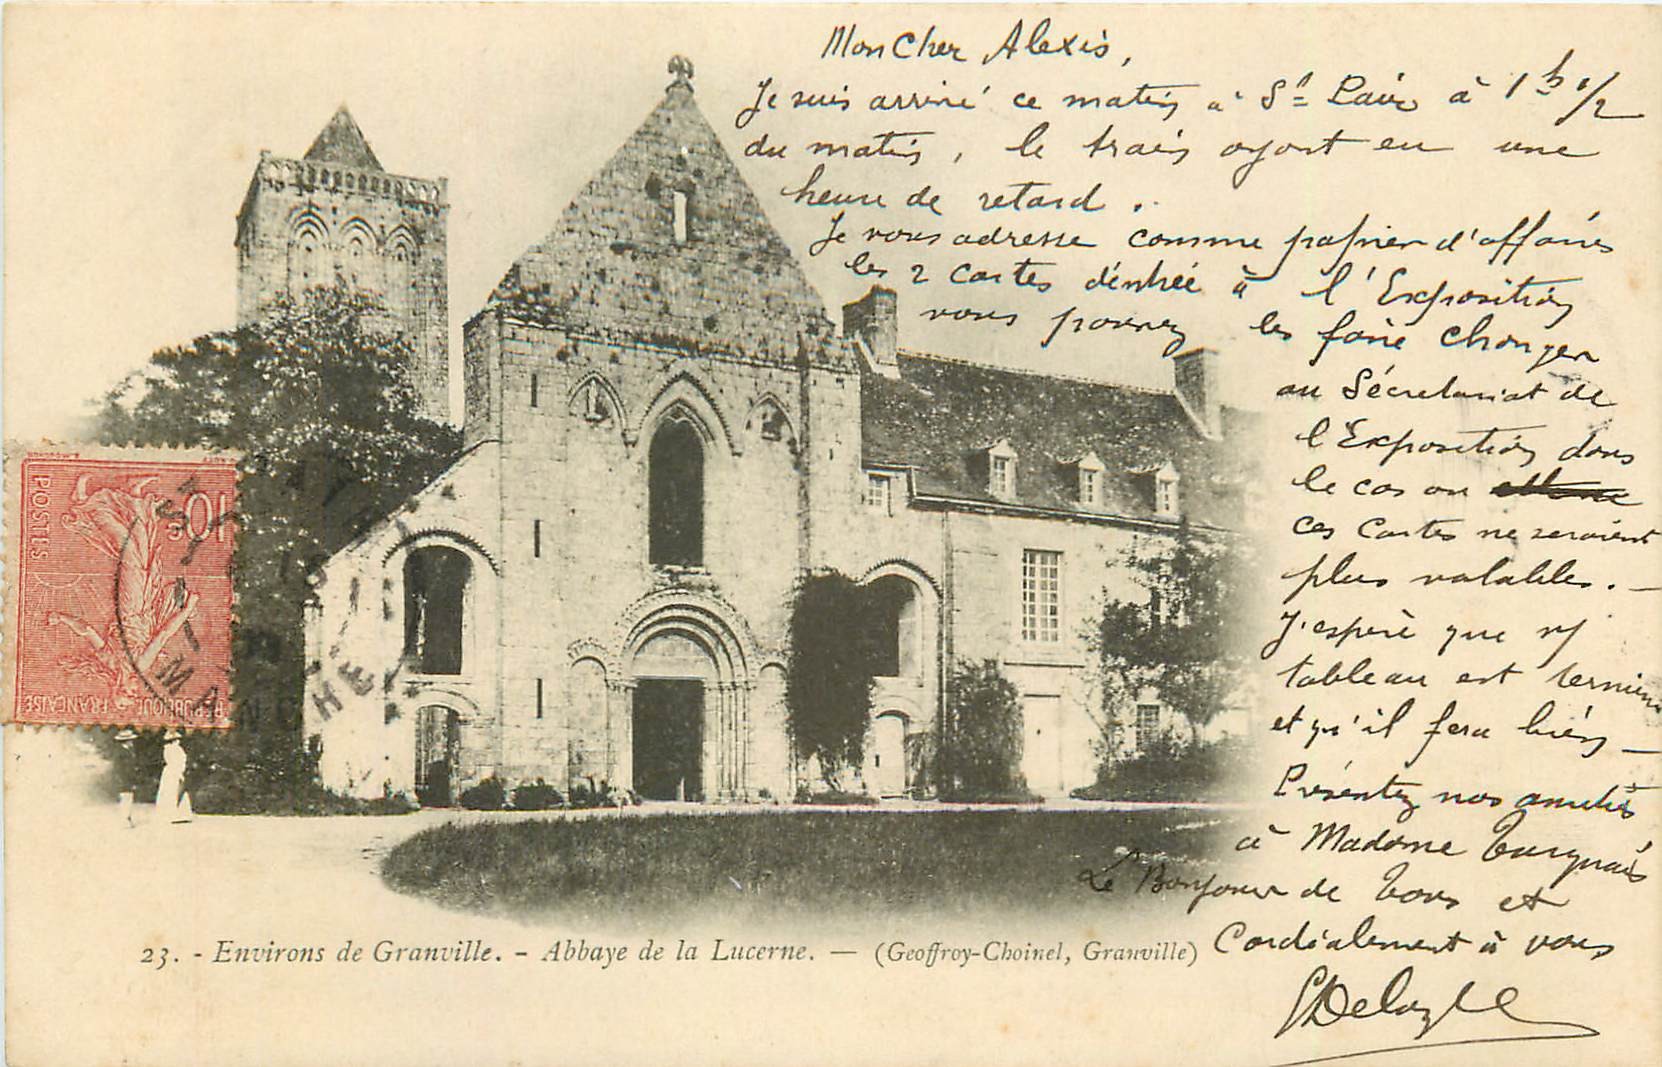 Mon Cher Alexis,
Je suis arrivé ce matin à St Pair à 1h 1/2
du matin, le train ayant eu une
heure de retard.
Je vous adresse comme papier d'affaires
les 2 cartes d'entrée à l'Exposition
vous pourrez les faire changer
au Sécretariat de
l'Exposition dans
le cas où
ces cartes ne seraient
plus valables. —
J'espère que
tableau est terminé
et qu'il fera bien —
Présentez nos amitiés
à Madame
Le Bonjour de Tous et
Cordialement à vous
10c
POSTES
REPUBLIQUE FRANÇAISE
MANCHE
23. - Environs de Granville. - Abbaye de la Lucerne. — (Geoffroy-Choinel, Granville)